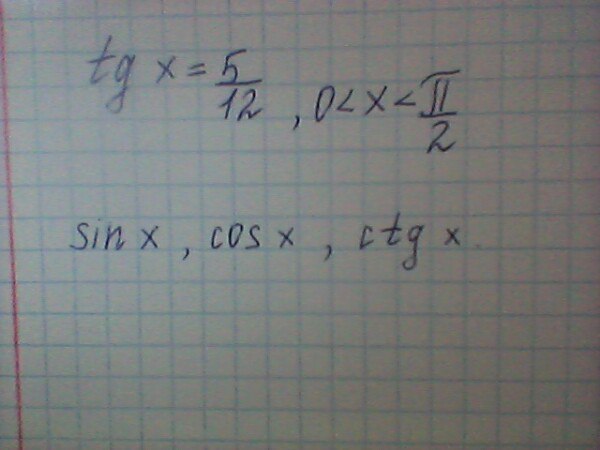 tg x = 5/12 , 0 < x < π/2
sin x , cos x , ctg x